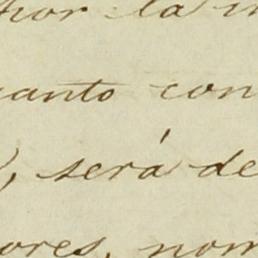 la
canto con
, será de
ores, nom